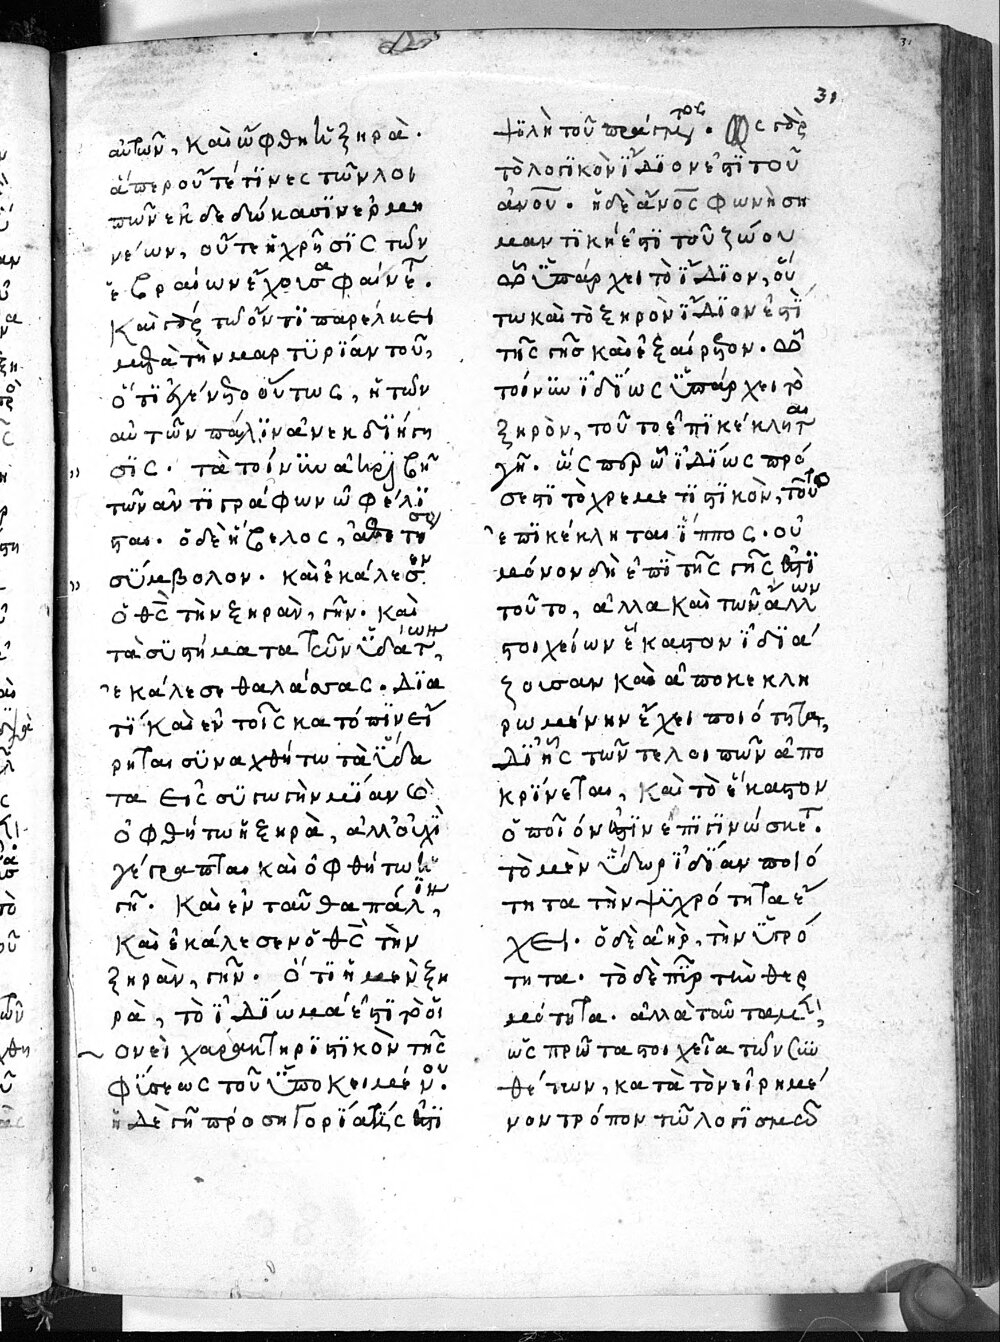 31
31
αὐτῶν, καὶ ὤφθη ἡ ξηρὰ.
ἅπερ οὔτέ τινες τῶν λοι
πῶν ἐκδεδώκασιν ἑρμη
νέων, οὔτε ἡ χρῆσις τῶν
ἑβραίων ἔχουσα φαίνετ.
Καὶ γὰρ τῷ ὄντι παρέλκει
μετὰ τὴν μαρτυρίαν τοῦ,
ὅτι ἐγένετο οὕτως, ἡ τῶν
αὐτῶν πάλιν ἀνεκδιήγη
σις. τὰ τοίνυν ἀκριβῆ
τῶν ἀντιγράφων ὠφέλι
σται. ὁ δὲ ἡ βελος, ἀθετήσεως
σύμβολον. καὶ ἐκάλεσεν
ὁ θς τὴν ξηρὰν, γῆν. καὶ
τὰ συστήματα τῶν ὑδάτων,
ἐκάλεσε θαλάσσας. Δια
τί καὶ ἐν τοῖς κατόπιν εἴ
ρηται συναχθήτω τὰ ὕδα
τα εἰς συγωγὴν μίαν καὶ
ὀφθήτω ἡ ξηρὰ, ἀλλ' οὐχὶ
γέγραπται καὶ ὀφθήτω ἡ
γῆ. Καὶ ἐν ταῦθα πάλιν,
καὶ ἐκάλεσεν ὁ θς τὴν
ξηρὰν, γῆν. Ὅτι ἡ μὲν ξη
ρὰ, τὸ ἰδίωμά ἐστι τὸ οἱ
ονεὶ χαρακτηριστικὸν τῆς
φύσεως τοῦ ὑποκειμένου.
ἡ δὲ γῆ προσηγορία τίς ἐστι
ψιλὴ τοῦ πράγματος. Ὡς γὰρ
τὸ λογικὸν ἴδιον ἐστὶ τοῦ
ἀνου. ἡ δὲ ἀνος φωνὴ ση
μαντικὴ ἐστὶ τοῦ ζώου
ᾧ ὑπάρχει τὸ ἴδιον, οὕ
τω καὶ τὸ ξηρὸν ἴδιον ἐστὶ
τῆς γῆς καὶ ἐξαίρετον. ᾧ
τοίνυν ἰδίως ὑπάρχει τὸ
ξηρὸν, τοῦτο ἐπικέκληται
γῆ. ὥσπερ ᾧ ἰδίως πρό
σεστι τὸ χρεμετιστικὸν, τοῦτο
ἐπικέκληται ἵππος. οὐ
μόνον δὴ ἐπὶ τῆς γῆς ἐστὶ
τοῦτο, ἀλλὰ καὶ τῶν ἄλλων
στοιχείων ἕκαστον ἰδιά
ζουσαν καὶ ἀποκεκλη
ρωμένην ἔχει ποιότητα,
δι' ἧς τῶν τε λοιπῶν ἀπο
κρίνεται, καὶ τὸ ἕκαστον
ὁποῖόν ἐστιν ἐπιγινώσκετ.
τὸ μὲν ὕδωρ ἰδίαν ποιό
τητα τὴν ψυχρότητα ἔ
χει. ὁ δὲ ἀὴρ, τὴν ὑγρό
τητα. τὸ δὲ πῦρ τὴν θερ
μότητα. ἀλλὰ ταῦτα μὲν,
ὡς πρῶτα στοιχεῖα τῶν συν
θέτων, κατὰ τὸν εἰρημέ
νον τρόπον τῷ λογισμῷ